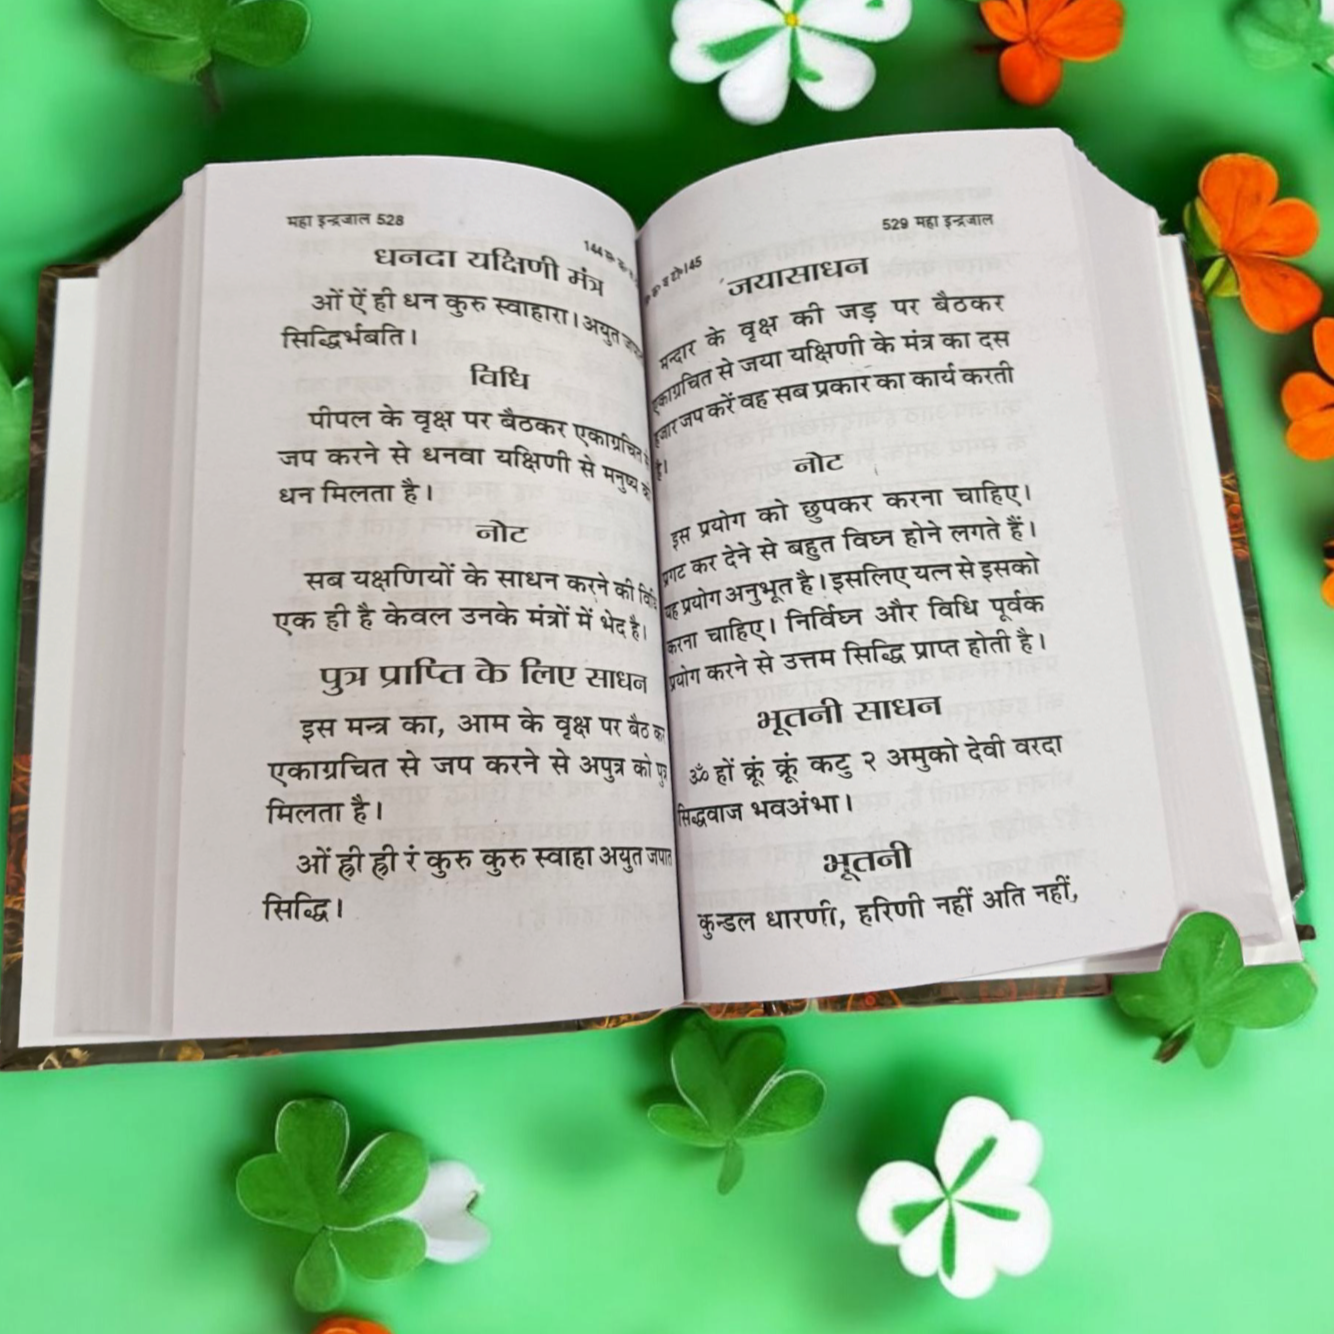 महा इन्द्रजाल 528
144
धनदा यक्षिणी मंत्र
ओं ऐं ही धन कुरु स्वाहारा। अयुत
सिद्धिर्भबति।
विधि
पीपल के वृक्ष पर बैठकर एकाग्रचित
जप करने से धनवा यक्षिणी से मनुष्य को
धन मिलता है।
नोट
सब यक्षणियों के साधन करने की विधि
एक ही है केवल उनके मंत्रों में भेद है।
पुत्र प्राप्ति के लिए साधन
इस मन्त्र का, आम के वृक्ष पर बैठ कर
एकाग्रचित से जप करने से अपुत्र को पुत्र
मिलता है।
ओं ह्री ह्री रं कुरु कुरु स्वाहा अयुत जपात
सिद्धि।
529 महा इन्द्रजाल
145
जयासाधन
मन्दार के वृक्ष की जड़ पर बैठकर
एकाग्रचित से जया यक्षिणी के मंत्र का दस
हजार जप करें वह सब प्रकार का कार्य करती
है।
नोट
इस प्रयोग को छुपकर करना चाहिए।
प्रगट कर देने से बहुत विघ्न होने लगते हैं।
यह प्रयोग अनुभूत है। इसलिए यत्न से इसको
करना चाहिए। निर्विघ्न और विधि पूर्वक
प्रयोग करने से उत्तम सिद्धि प्राप्त होती है।
भूतनी साधन
ॐ हों क्रूं क्रूं कटु २ अमुको देवी वरदा
सिद्धवाज भवअंभा।
भूतनी
कुन्डल धारणी, हरिणी नहीं अति नहीं,